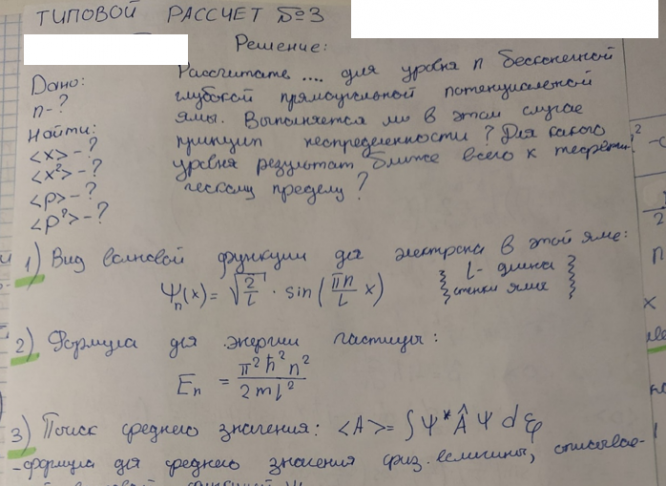 ТИПОВОЙ РАССЧЕТ №3
Решение:
Дано:
n-?
Найти:
<x> -?
<x²> -?
<p> -?
<p²> -?
Рассчитать .... для уровня n бесконечной
глубокой прямоугольной потенциальной
ямы. Выполняется ли в этом случае
принцип неопределенности? Для какого
уровня результат ближе всего к теорети-
ческому пределу?
1) Вид волновой функции для электрона в этой яме:
Ψn(x) = √(2/l) · sin(πn/l x) {l - длина стенки ямы}
2) Формула для энергии частицы:
En = π²ħ²n²/2ml²
3) Поиск среднего значения: <A> = ∫Ψ* Â Ψ dφ
-формула для среднего значения физ. величины, описывае-